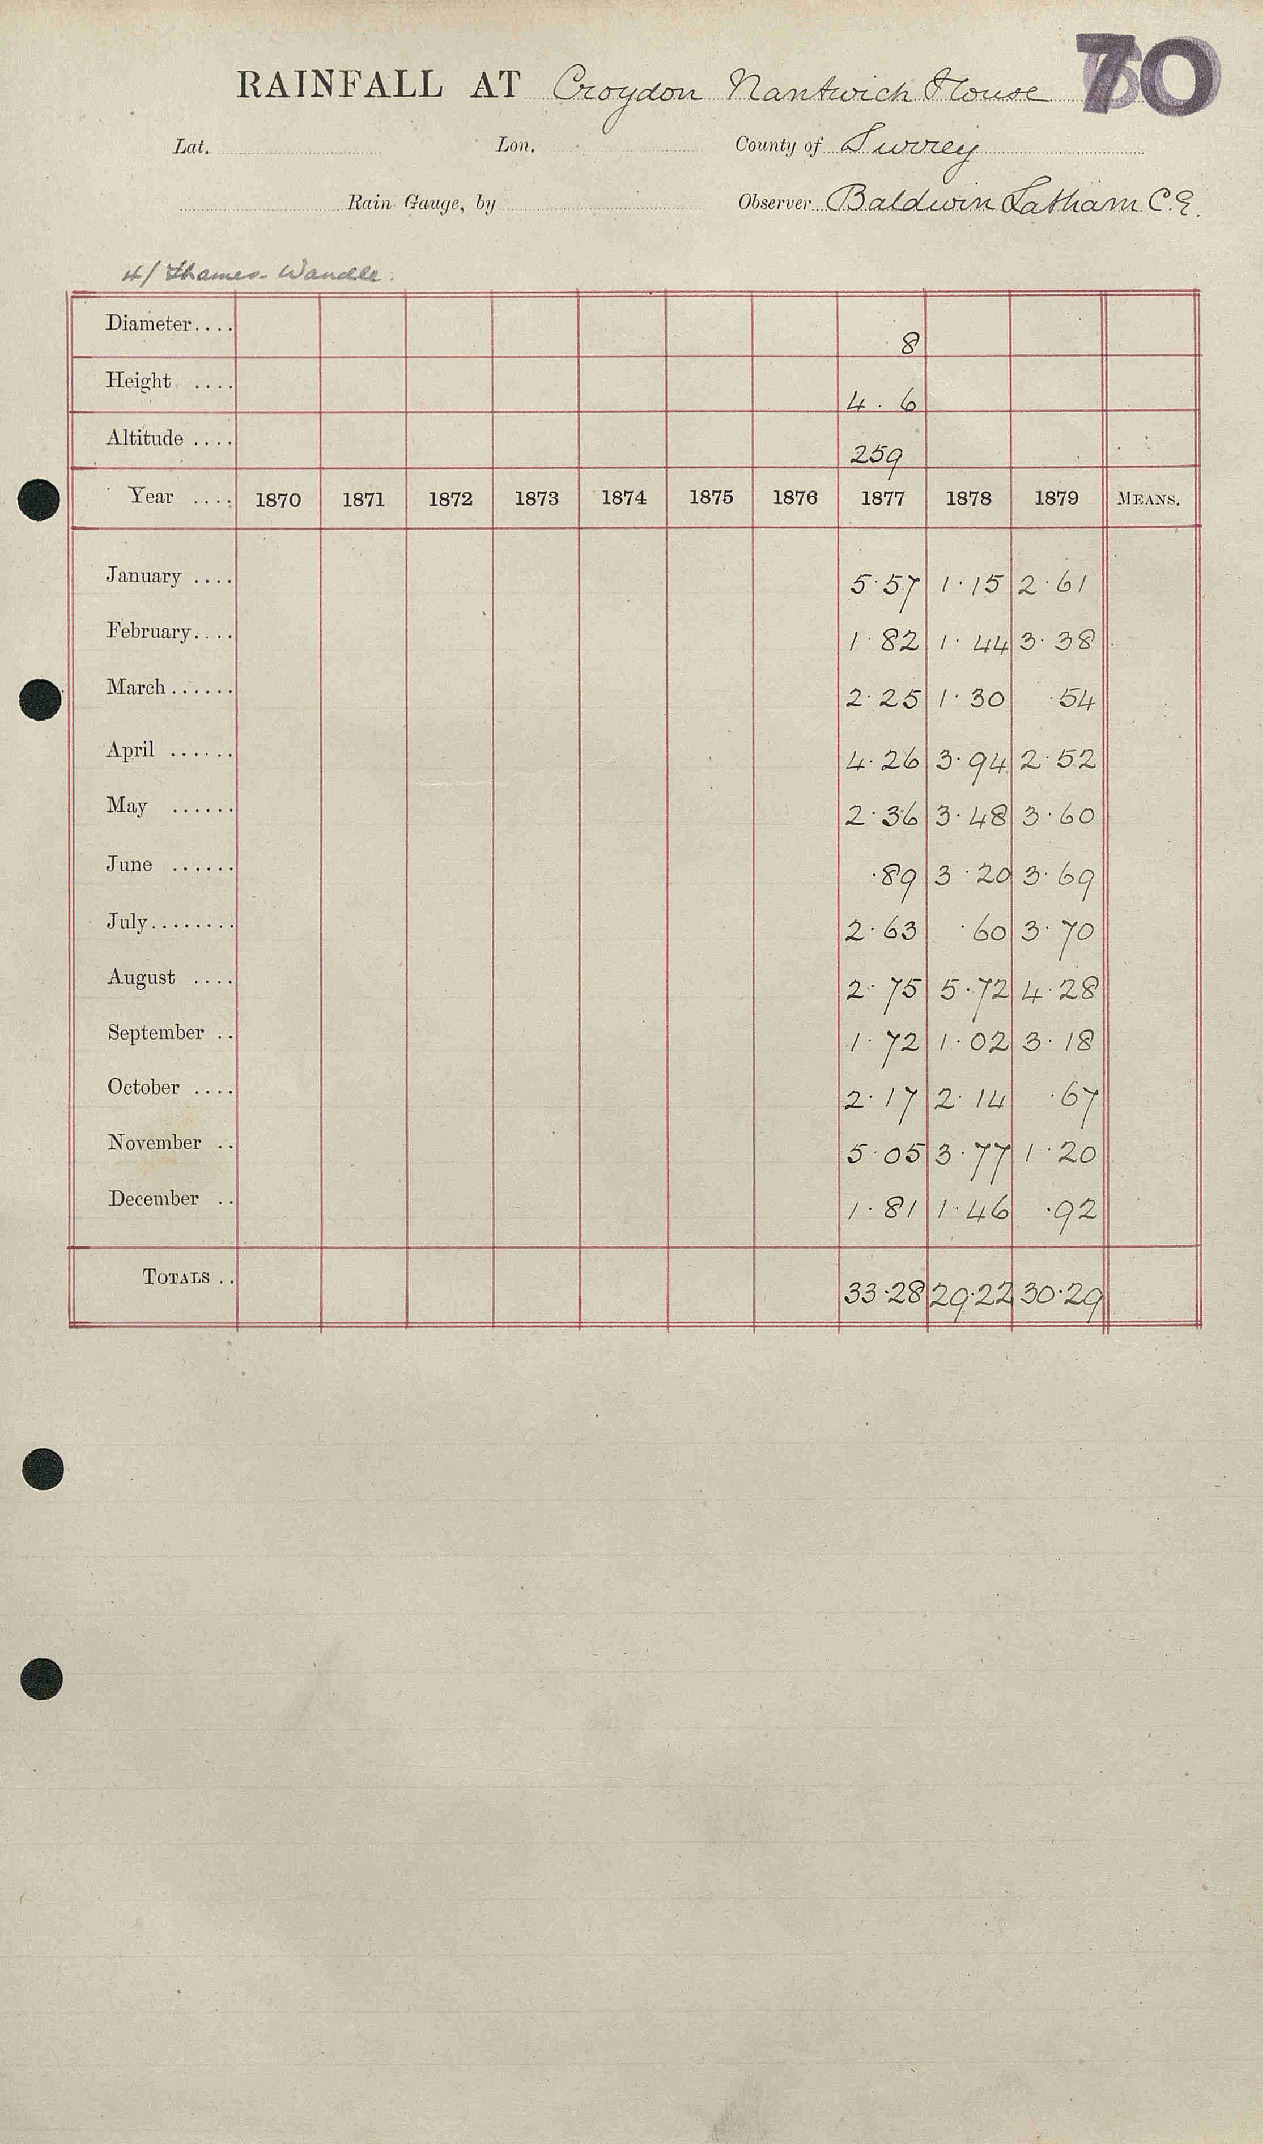 70
RAINFALL AT Croydon Nantwich House
Lat. Lon. County of Surrey
Rain Gauge, by Observer Baldwin Latham C.E.
4/ Thames-Wandle.
Diameter.... 8
Height .... 4.6
Altitude .... 259
Year .... 1870 1871 1872 1873 1874 1875 1876 1877 1878 1879 MEANS.
January .... 5.57 1.15 2.61
February.... 1.82 1.44 3.38
March...... 2.25 1.30 .54
April ...... 4.26 3.94 2.52
May ...... 2.36 3.48 3.60
June ...... .89 3.20 3.69
July........ 2.63 .60 3.70
August .... 2.75 5.72 4.28
September .. 1.72 1.02 3.18
October .... 2.17 2.14 .67
November .. 5.05 3.77 1.20
December .. 1.81 1.46 .92
TOTALS .. 33.28 29.22 30.29